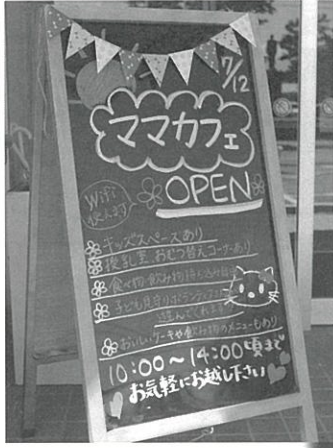 7/12
ママカフェ
OPEN
Wifi
使えます
キッズスペースあり
授乳室、おむつ替えコーナーあり
食べ物・飲み物持ち込み自由
子ども見守りボランティアさんが
遊んでくれます
おいしいケーキや飲み物のメニューもあり
10:00〜14:00頃まで
お気軽にお越し下さい